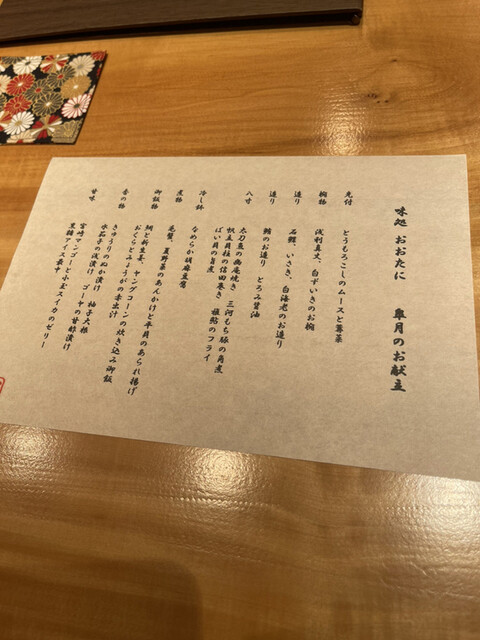 味処 おおたに 皐月のお献立
先付 とうもろこしのムースと蓴菜
椀物 浅利真丈、白ずいきのお椀
造り 石鯛、いさき、白海老のお造り
造り 鰹のお造り とろみ醤油
八寸 太刀魚の幽庵焼き 三河もち豚の角煮
帆立貝柱の信田巻き 稚鮎のフライ
ばい貝の旨煮
冷し鉢 なめらか胡麻豆腐
煮物 毛蟹、夏野菜のあんかけと平貝のあられ揚げ
御飯物 鯛と新生姜、ヤングコーンの炊き込み御飯
おくらとみょうがの赤出汁
香の物 きゅうりのぬか漬け 柚子大根
水茄子の浅漬け ゴーヤの甘酢漬け
甘味 宮崎マンゴーと小玉スイカのゼリー
黒糖アイス最中